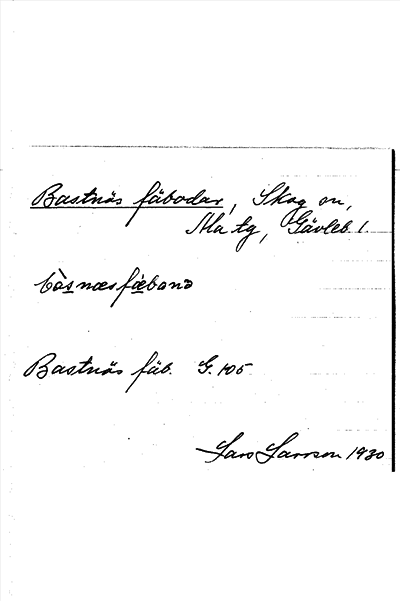 Bastnäs fäbodar, Skog sn,
Ala tg, Gävleb l.
bàsnæsfæbană
Bastnäs fäb. G. 105
Lars Larsson 1930